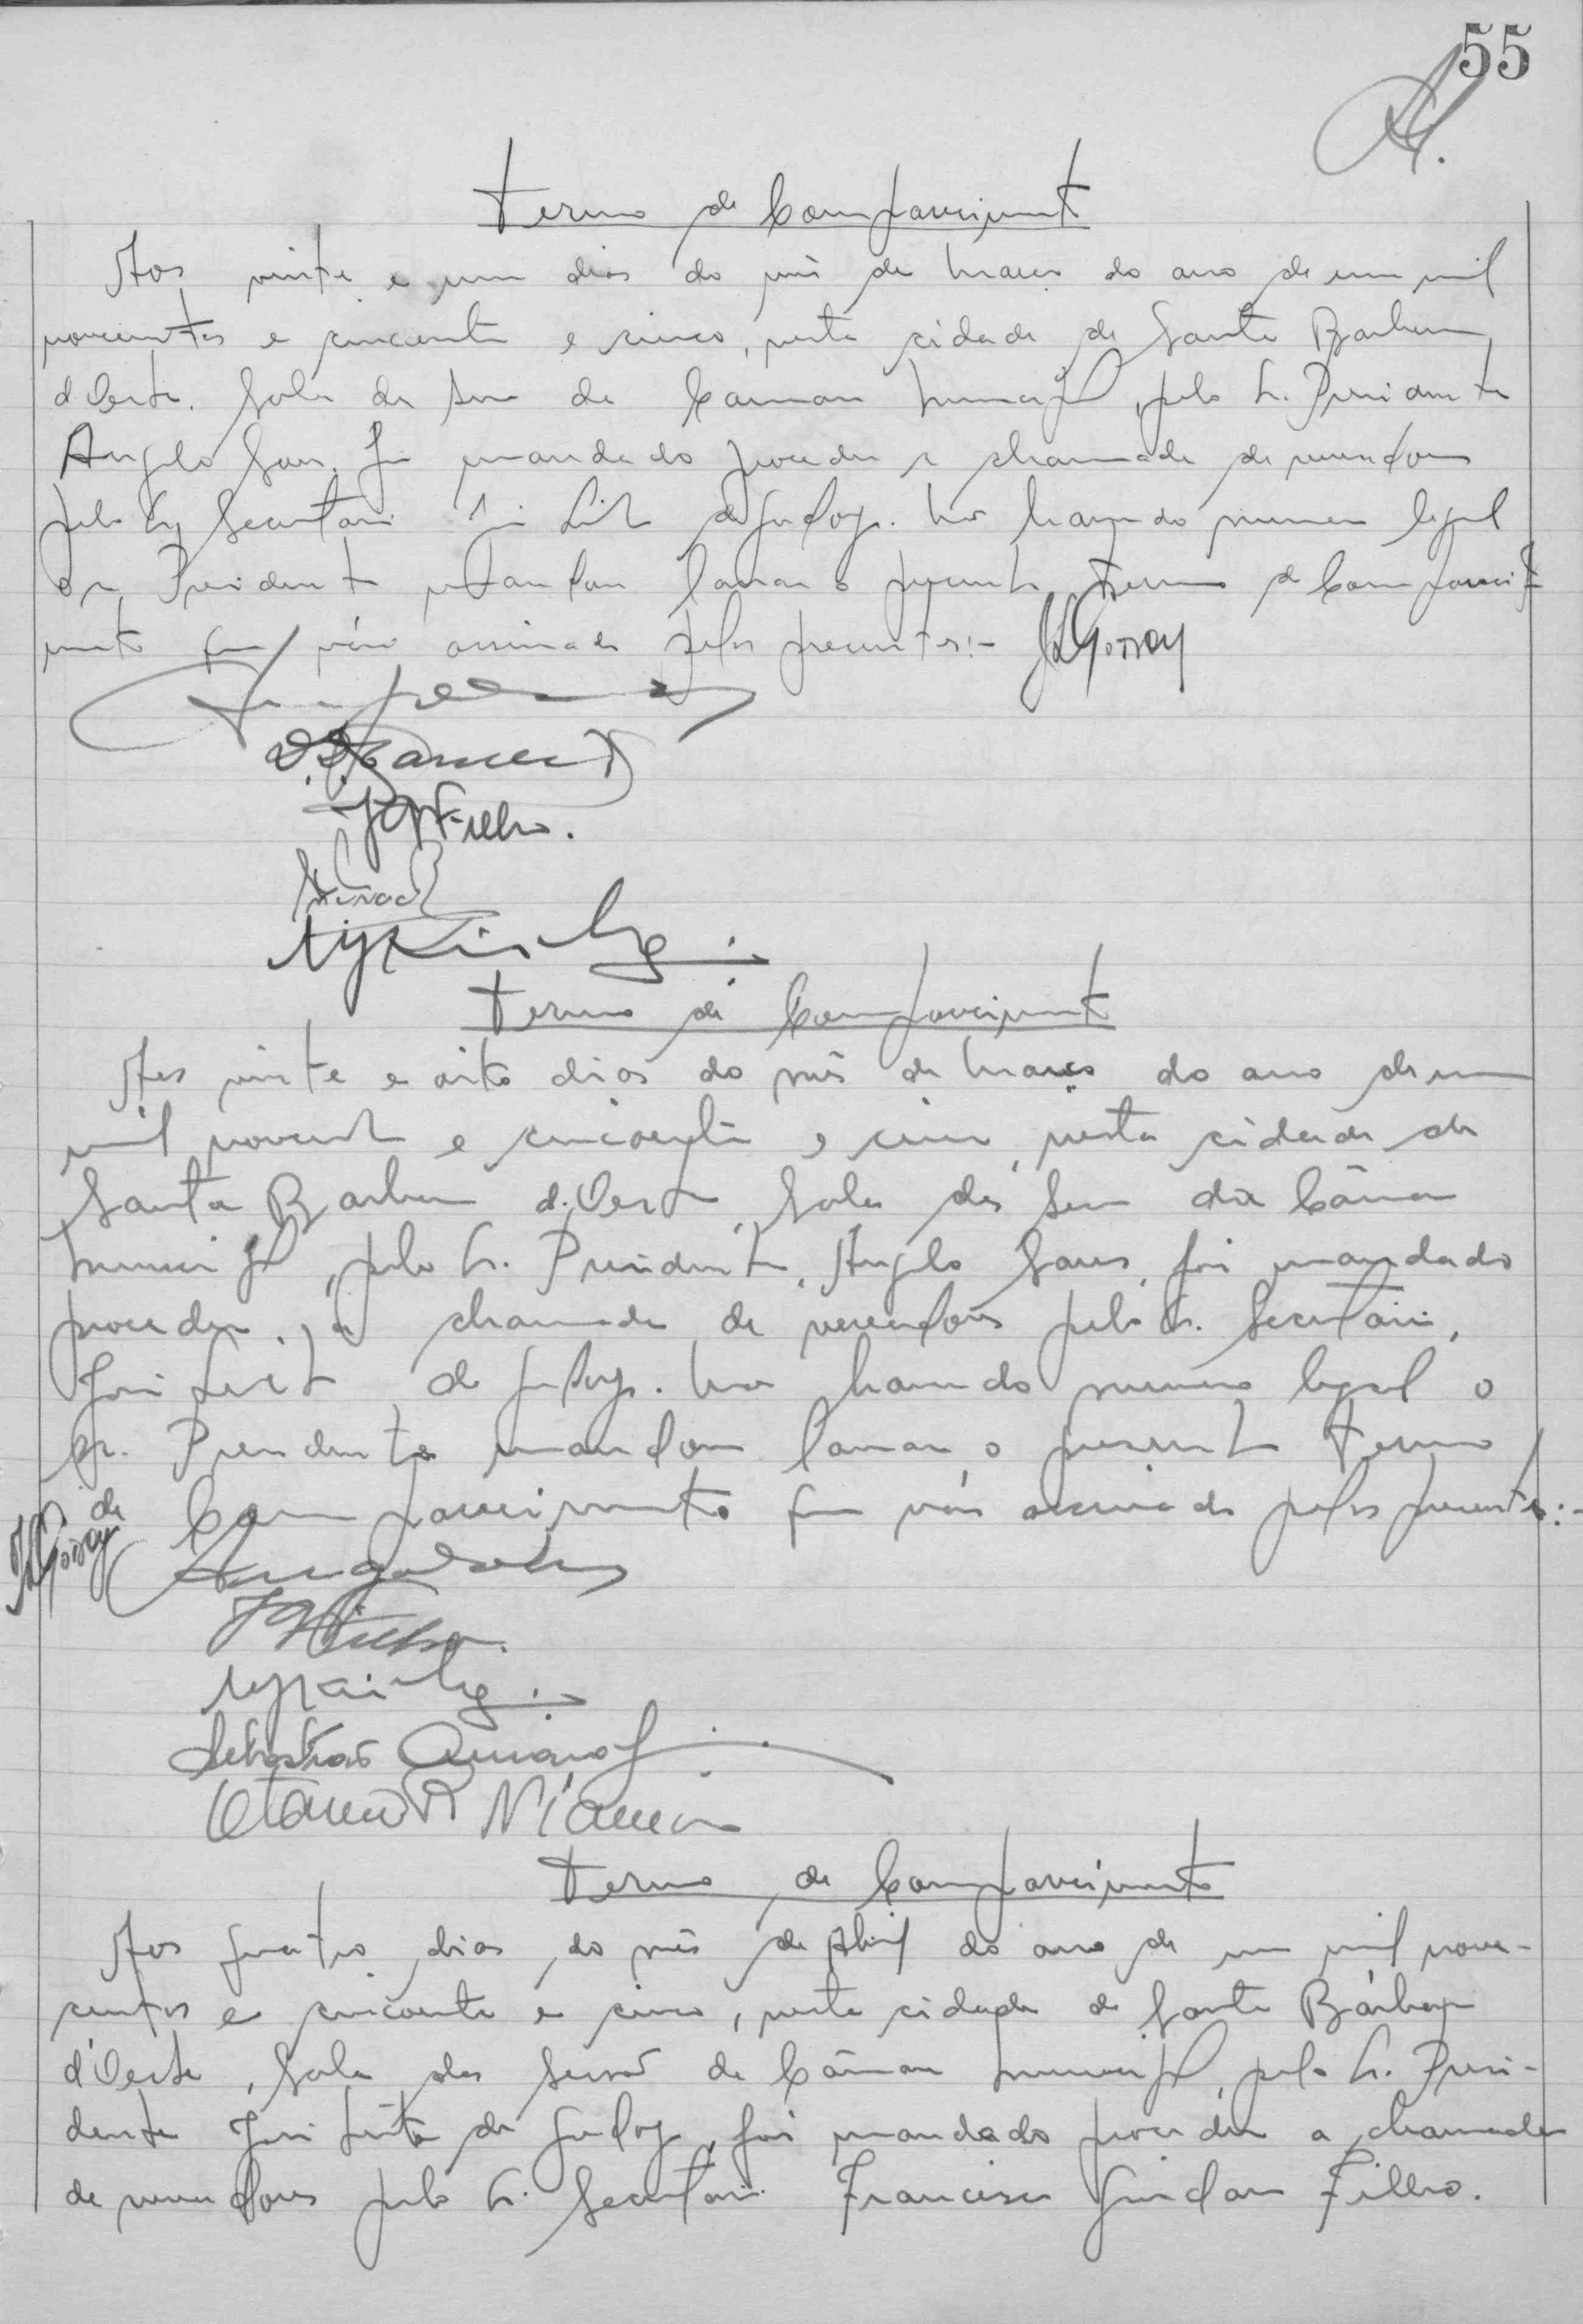 55
Termo de Comparecimento
Aos vinte e um dias do mês de Março do ano de um mil
novecentos e cincoenta e cinco, nesta cidade de Santa Barbara
d'Oeste, Sala das Sessões da Camara Municipal, pelo Sr. Presidente
Angelo Sans, foi mandado proceder a chamada de vereadores
pelo Sr. Secretario José Leite de Godoy. Não havendo numero legal
o sr. Presidente mandou lavrar o presente Termo de Compareci-
mento que vái assinado pelos presentes:- JLGodoy
Termo de Comparecimento
Aos vinte e oito dias do mês de Março do ano de um
mil novecentos e cincoenta e cinco, nesta cidade de
Santa Barbara d'Oeste, Sala das Sessões da Câmara
Municipal, pelo Sr. Presidente, Angelo Sans, foi mandado
proceder a chamada de vereadores pelo Sr. Secretário,
José Leite de Godoy. Não havendo numero legal o
sr. Presidente mandou lavrar o presente Termo
de Comparecimento que vái assinado pelos presentes:-
JLGodoy
Termo de Comparecimento
Aos quatro dias do mês de Abril do ano de um mil nove-
centos e cincoenta e cinco, nesta cidade de Santa Bárbara
d'Oeste, Sala das Sessões da Câmara Municipal, pelo Sr. Presi-
dente José Leite de Godoy, foi mandado proceder a chamada
de vereadores pelo Sr. Secretário Francisco Filho.